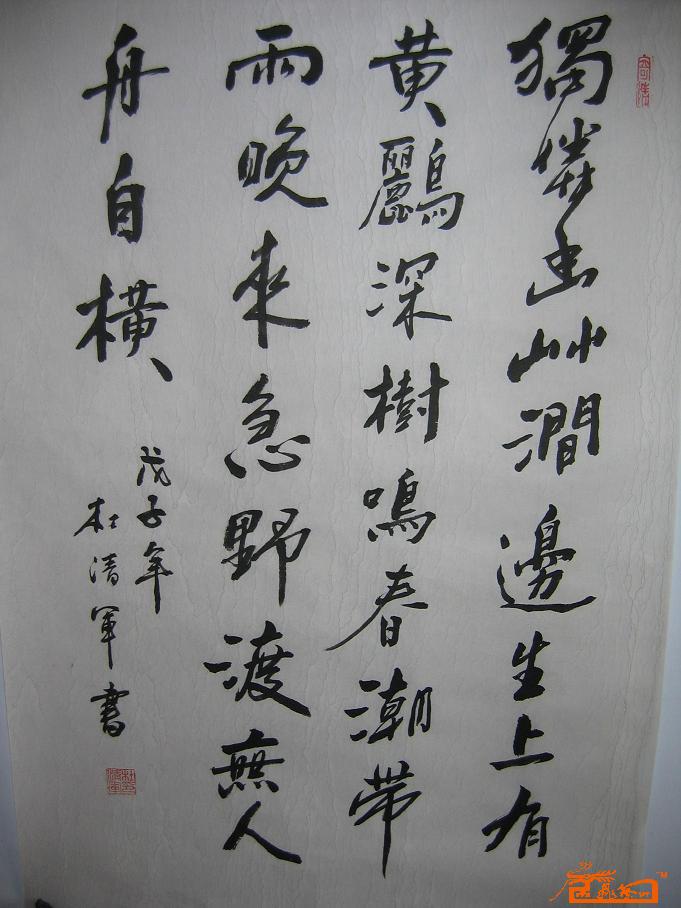 獨憐幽艸澗邊生上有
黄鸝深樹鳴春潮带
雨晚來急野渡無人
舟自橫
戊子年
杜清军書